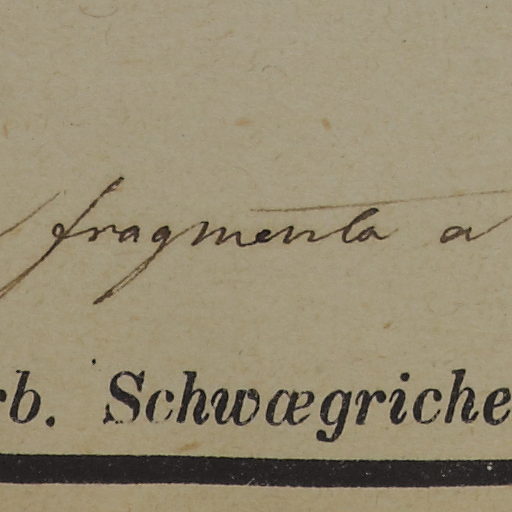 fragmenta a
rb. Schwægriche